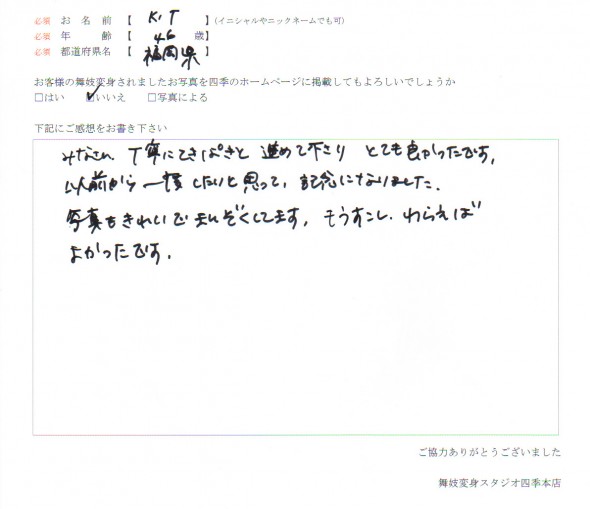 必須 お 名 前 【 K.T 】(イニシャルやニックネームでも可)
必須 年 齢 【 46 歳】
必須 都道府県名 【 福岡県 】
お客様の舞妓変身されましたお写真を四季のホームページに掲載してもよろしいでしょうか
□はい ☑いいえ □写真による
下記にご感想をお書き下さい
みなさん 丁寧にてきぱきと 進めて下さり とても良かったです。
以前から 一度 したいと思って、記念になりました.
写真もきれいで まんぞくしてます。 もうすこし わらえば
よかったです。
ご協力ありがとうございました
舞妓変身スタジオ四季本店